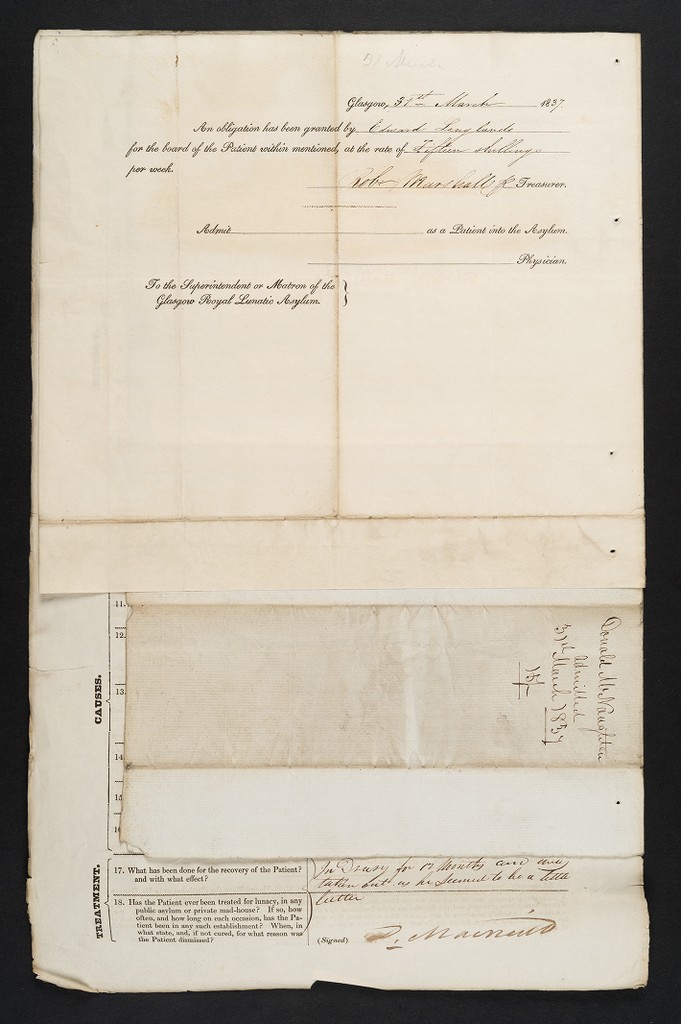 31 March
Glasgow, 31st March 1837.
An obligation has been granted by Edward Langlands
for the board of the Patient within mentioned, at the rate of Fifteen shillings
per week.
Robt Marshall Treasurer.
Admit as a Patient into the Asylum.
Physician.
To the Superintendent or Matron of the
Glasgow Royal Lunatic Asylum.
Donald McNaughten
Admitted
31st March 1837
15/
CAUSES.
11.
12.
13.
14
15
TREATMENT.
17. What has been done for the recovery of the Patient?
and with what effect?
18. Has the Patient ever been treated for lunacy, in any
public asylum or private mad-house? If so, how
often, and how long on each occasion, has the Pa-
tient been in any such establishment? When, in
what state, and, if not cured, for what reason was
the Patient dismissed?
for 12 Months and was
taken out as he seemed to be a little
better
(Signed)